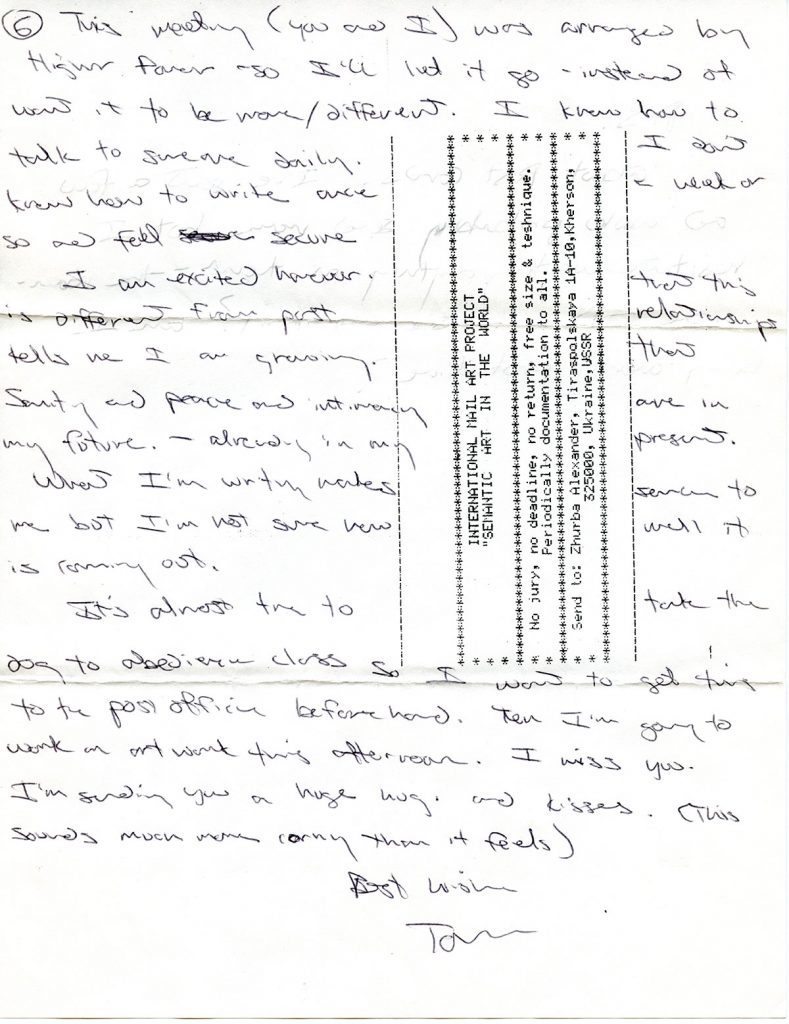 6 This meeting (you and I) was arranged by
Higher Power - so I'll let it go - instead of
want it to be more/different. I know how to
talk to someone daily. I don't
know how to write once a week or
so and feel secure
I am excited however. that this
is different from past relationships
tells me I am growing. that
Sanity and peace and intimacy are in
my future. - already in my present.
What I'm writing makes sense to
me but I'm not sure how well it
is coming out.
It's almost time to take the
dog to obedience class so I want to get this
to the post office beforehand. Then I'm going to
work on art work this afternoon. I miss you.
I'm sending you a huge hug. and kisses. (This
sounds much more corny than it feels)
Best wishes
INTERNATIONAL MAIL ART PROJECT
"SEMANTIC ART IN THE WORLD"
No jury, no deadline, no return, free size & teshnique.
Periodically documentation to all.
Send to: Zhurba Alexander, Tiraspolskaya 1A-10,Kherson,
325000, Ukraine,USSR